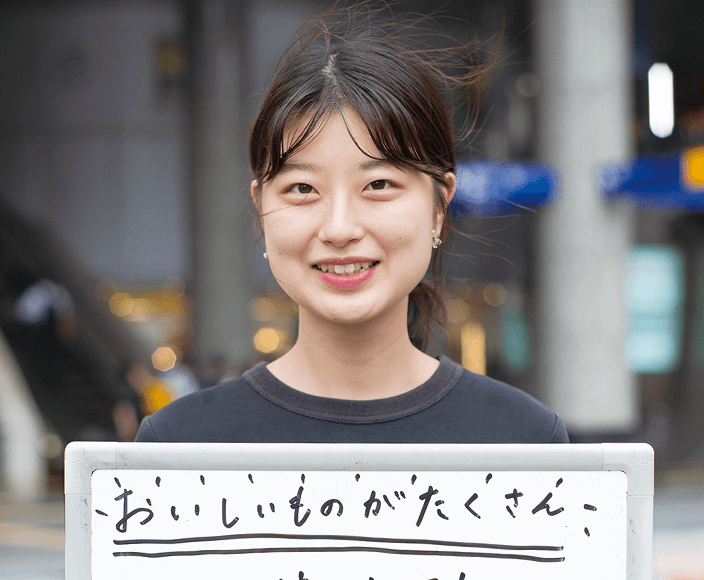 おいしいものがたくさん